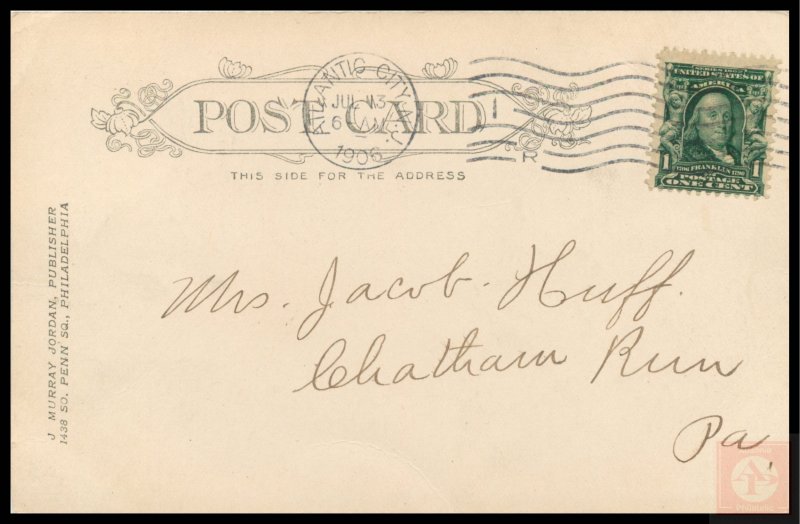 POST CARD
THIS SIDE FOR THE ADDRESS
ATLANTIC CITY, N.J.
JUL 13
6 AM
1906
1
R
SERIES 1902
UNITED STATES OF
AMERICA
1706 FRANKLIN 1790
1 1
POSTAGE
ONE CENT
J MURRAY JORDAN, PUBLISHER
1438 SO. PENN SQ., PHILADELPHIA
Mrs. Jacob. Huff.
Chatham Run
Pa,